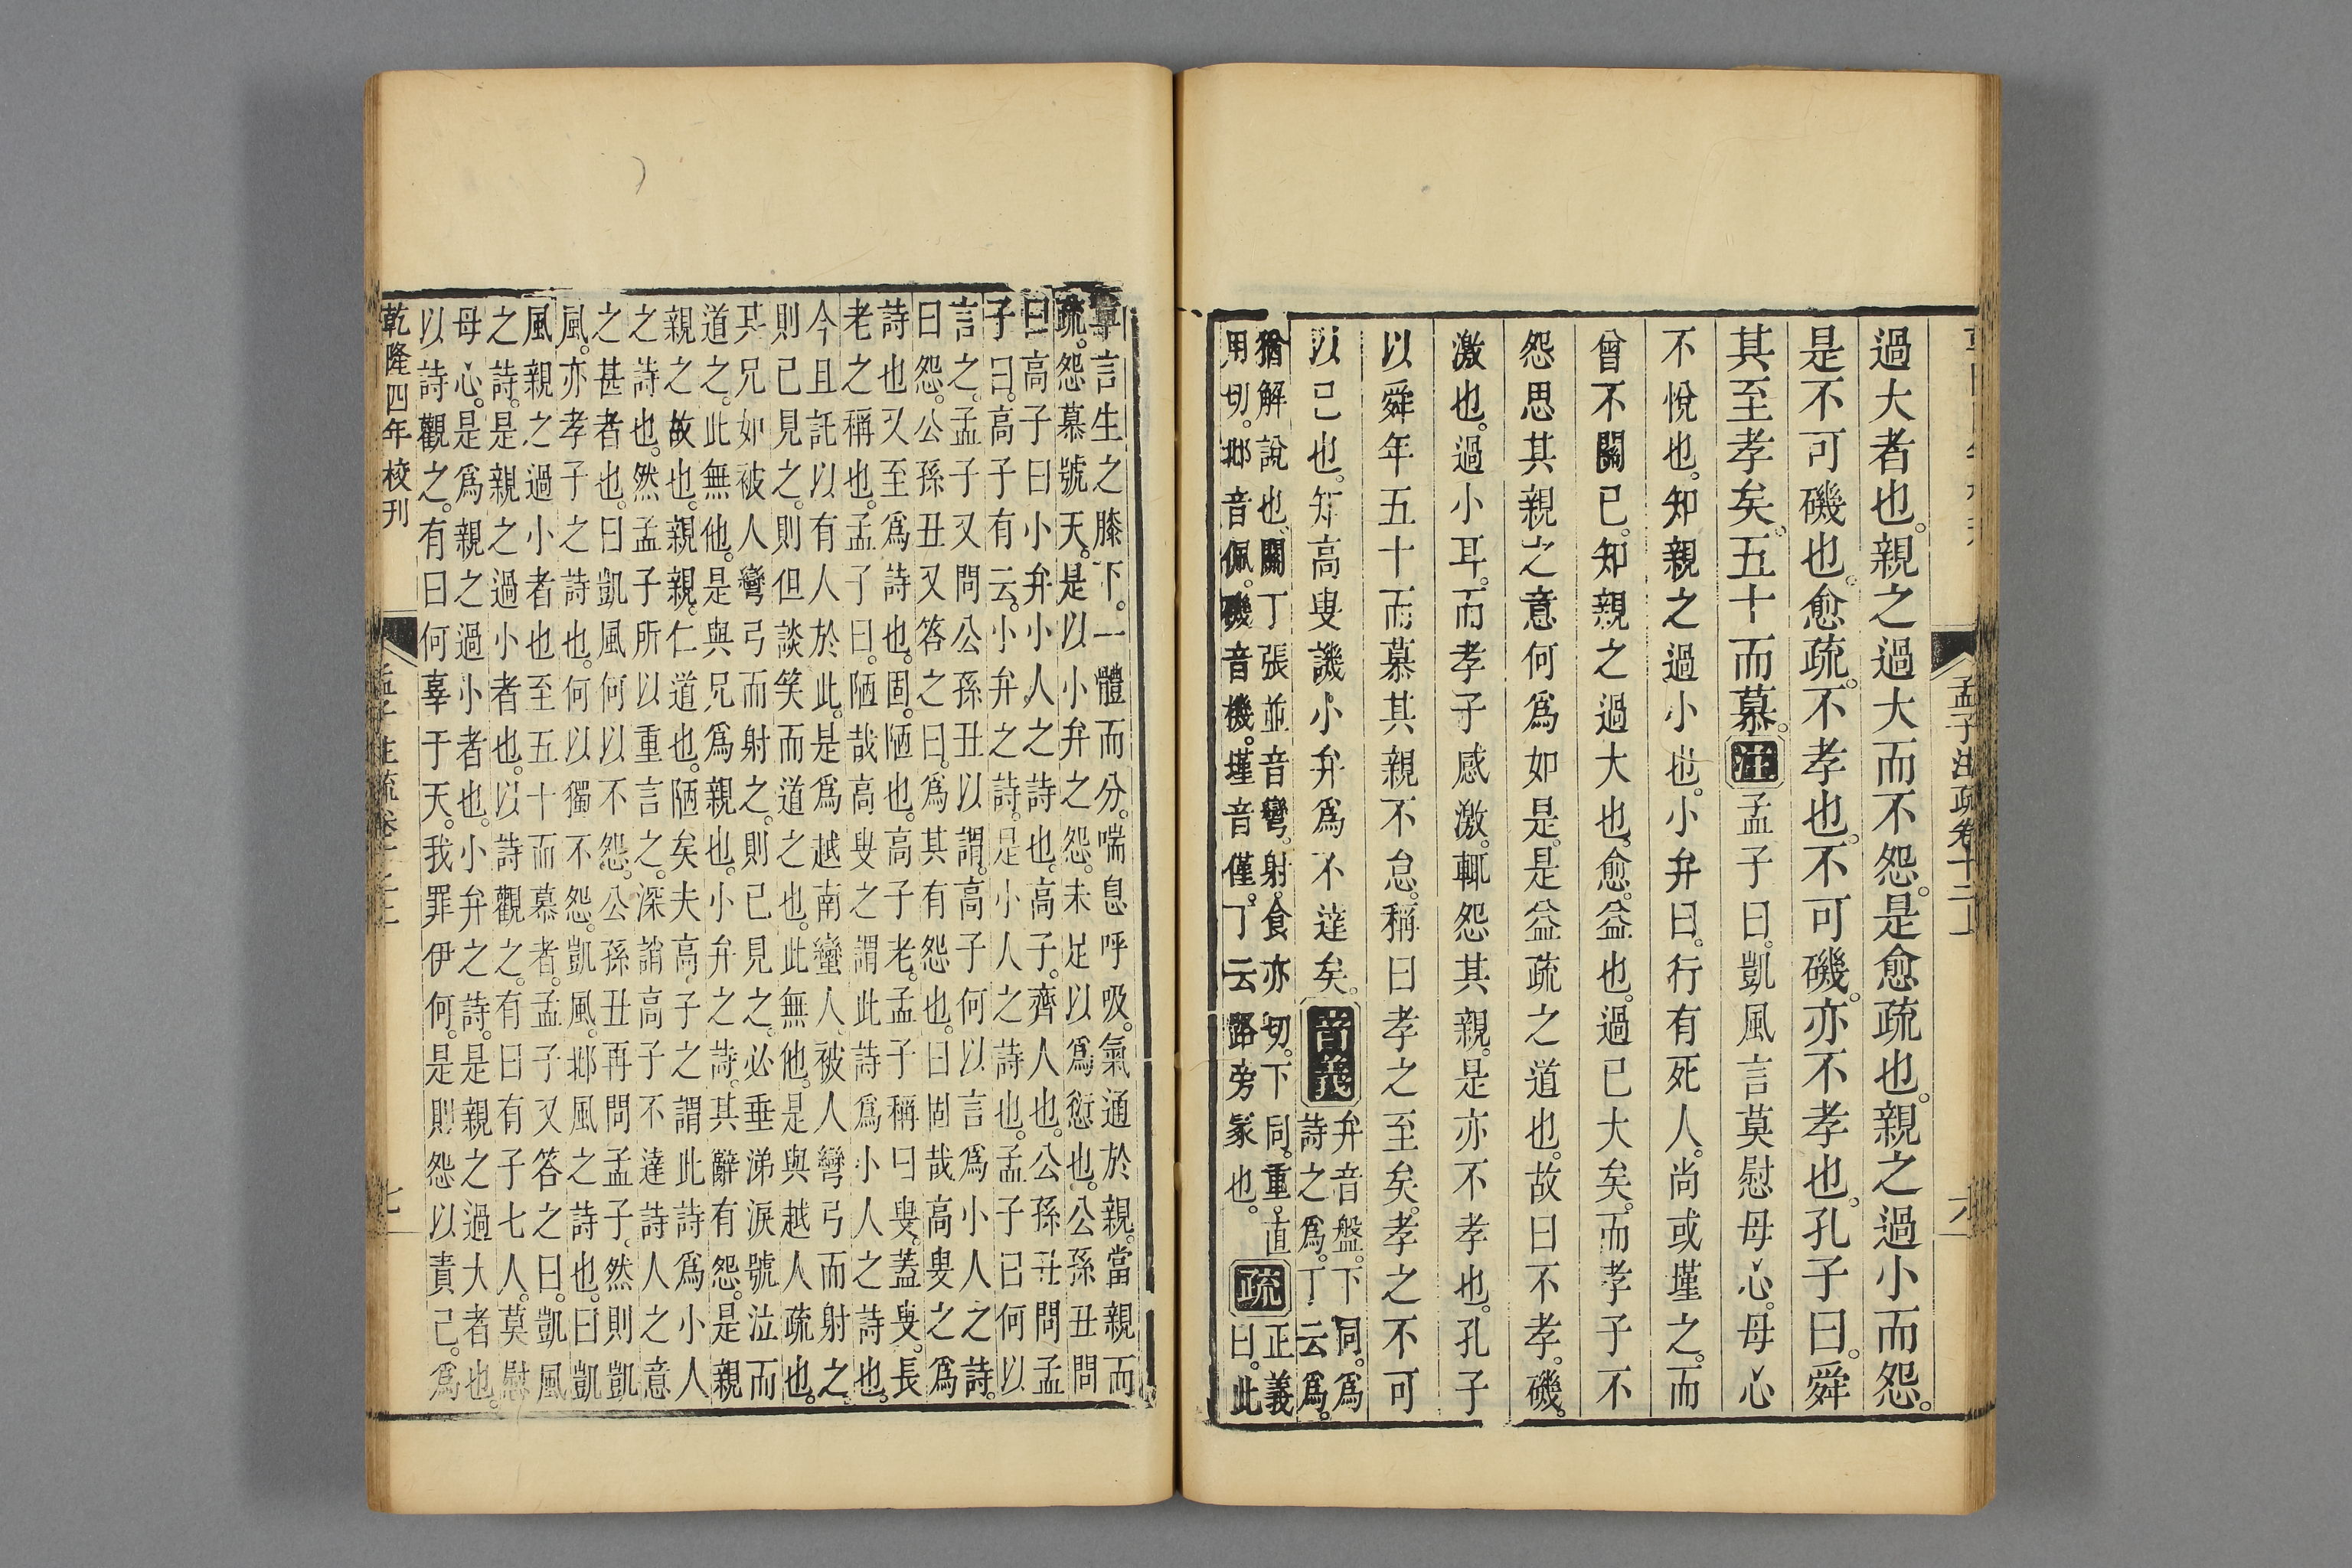 過大者也。親之過大而不怨。是愈疏也。親之過小而怨。
是不可磯也。愈疏。不孝也。不可磯。亦不孝也。孔子曰。舜
其至孝矣。五十而慕。注孟子曰。凱風言莫慰母心。母心
不悅也。知親之過小也。小弁曰。行有死人。尚或墐之。而
曾不關已。知親之過大也。愈。益也。過已大矣。而孝子不
怨思其親之意何爲如是。是益疏之道也。故曰不孝。磯。
激也。過小耳。而孝子感激。輒怨其親。是亦不孝也。孔子
以舜年五十而慕其親不怠。稱曰孝之至矣。孝之不可
以已也。知高叟譏小弁爲不達矣。音義
弁音盤。下同。爲
詩之爲。丁云爲。
猶解說也。關丁張並音彎。射。食亦切。下同。重。直
用切。邶音佩。磯音機。墐音僅。丁云路旁冢也。疏
正義
曰。此
孟子注疏卷十二上
六
章言生之膝下。一體而分。喘息呼吸。氣通於親。當親而
疏。怨慕號天。是以小弁之怨。未足以爲愆也。公孫丑問
曰高子曰小弁小人之詩也。高子。齊人也。公孫丑問孟
子曰。高子有云。小弁之詩。是小人之詩也。孟子已何以
言之。孟子又問公孫丑以謂。高子何以言爲小人之詩。
曰怨。公孫丑又答之曰。爲其有怨也。曰固哉高叟之爲
詩也又至爲詩也。固。陋也。高子老。孟子稱曰叟。蓋叟。長
老之稱也。孟子曰。陋哉高叟之謂此詩爲小人之詩也。
今且託以有人於此。是爲越南蠻人被人彎弓而射之。
則已見之。則但談笑而道之也。此無他。是與越人疏也。
其兄如被人彎弓而射之。則已見之。必垂涕淚號泣而
道之。此無他。是與兄爲親也。小弁之詩。其辭有怨。是親
親之故也。親親。仁道也。陋矣夫高子之謂此詩爲小人
之詩也。然孟子所以重言之。深誚高子不達詩人之意
之甚者也。曰凱風何以不怨。公孫丑再問孟子。然則凱
風。亦孝子之詩也。何以獨不怨。凱風。邶風之詩也。曰凱
風親之過小者也至五十而慕者。孟子又答之曰。凱風
之詩。是親之過小者也。以詩觀之。有曰有子七人。莫慰
母心。是爲親之過小者也。小弁之詩。是親之過大者也。
以詩觀之。有曰何辜于天。我罪伊何。是則怨以責己。爲
乾隆四年校刊
孟子注疏卷十二上
七